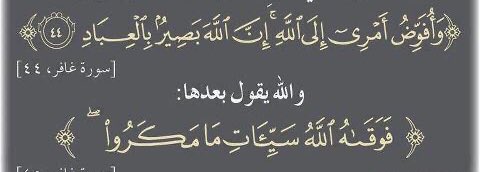 ﴿وَأُفَوِّضُ أَمْرِىٓ إِلَى ٱللَّهِ ۚ إِنَّ ٱللَّهَ بَصِيرٌۢ بِٱلْعِبَادِ ٤٤﴾
[سورة غافر، ٤٤]
والله يقول بعدها:
﴿فَوَقَىٰهُ ٱللَّهُ سَيِّـَٔاتِ مَا مَكَرُوا۟ ۖ﴾